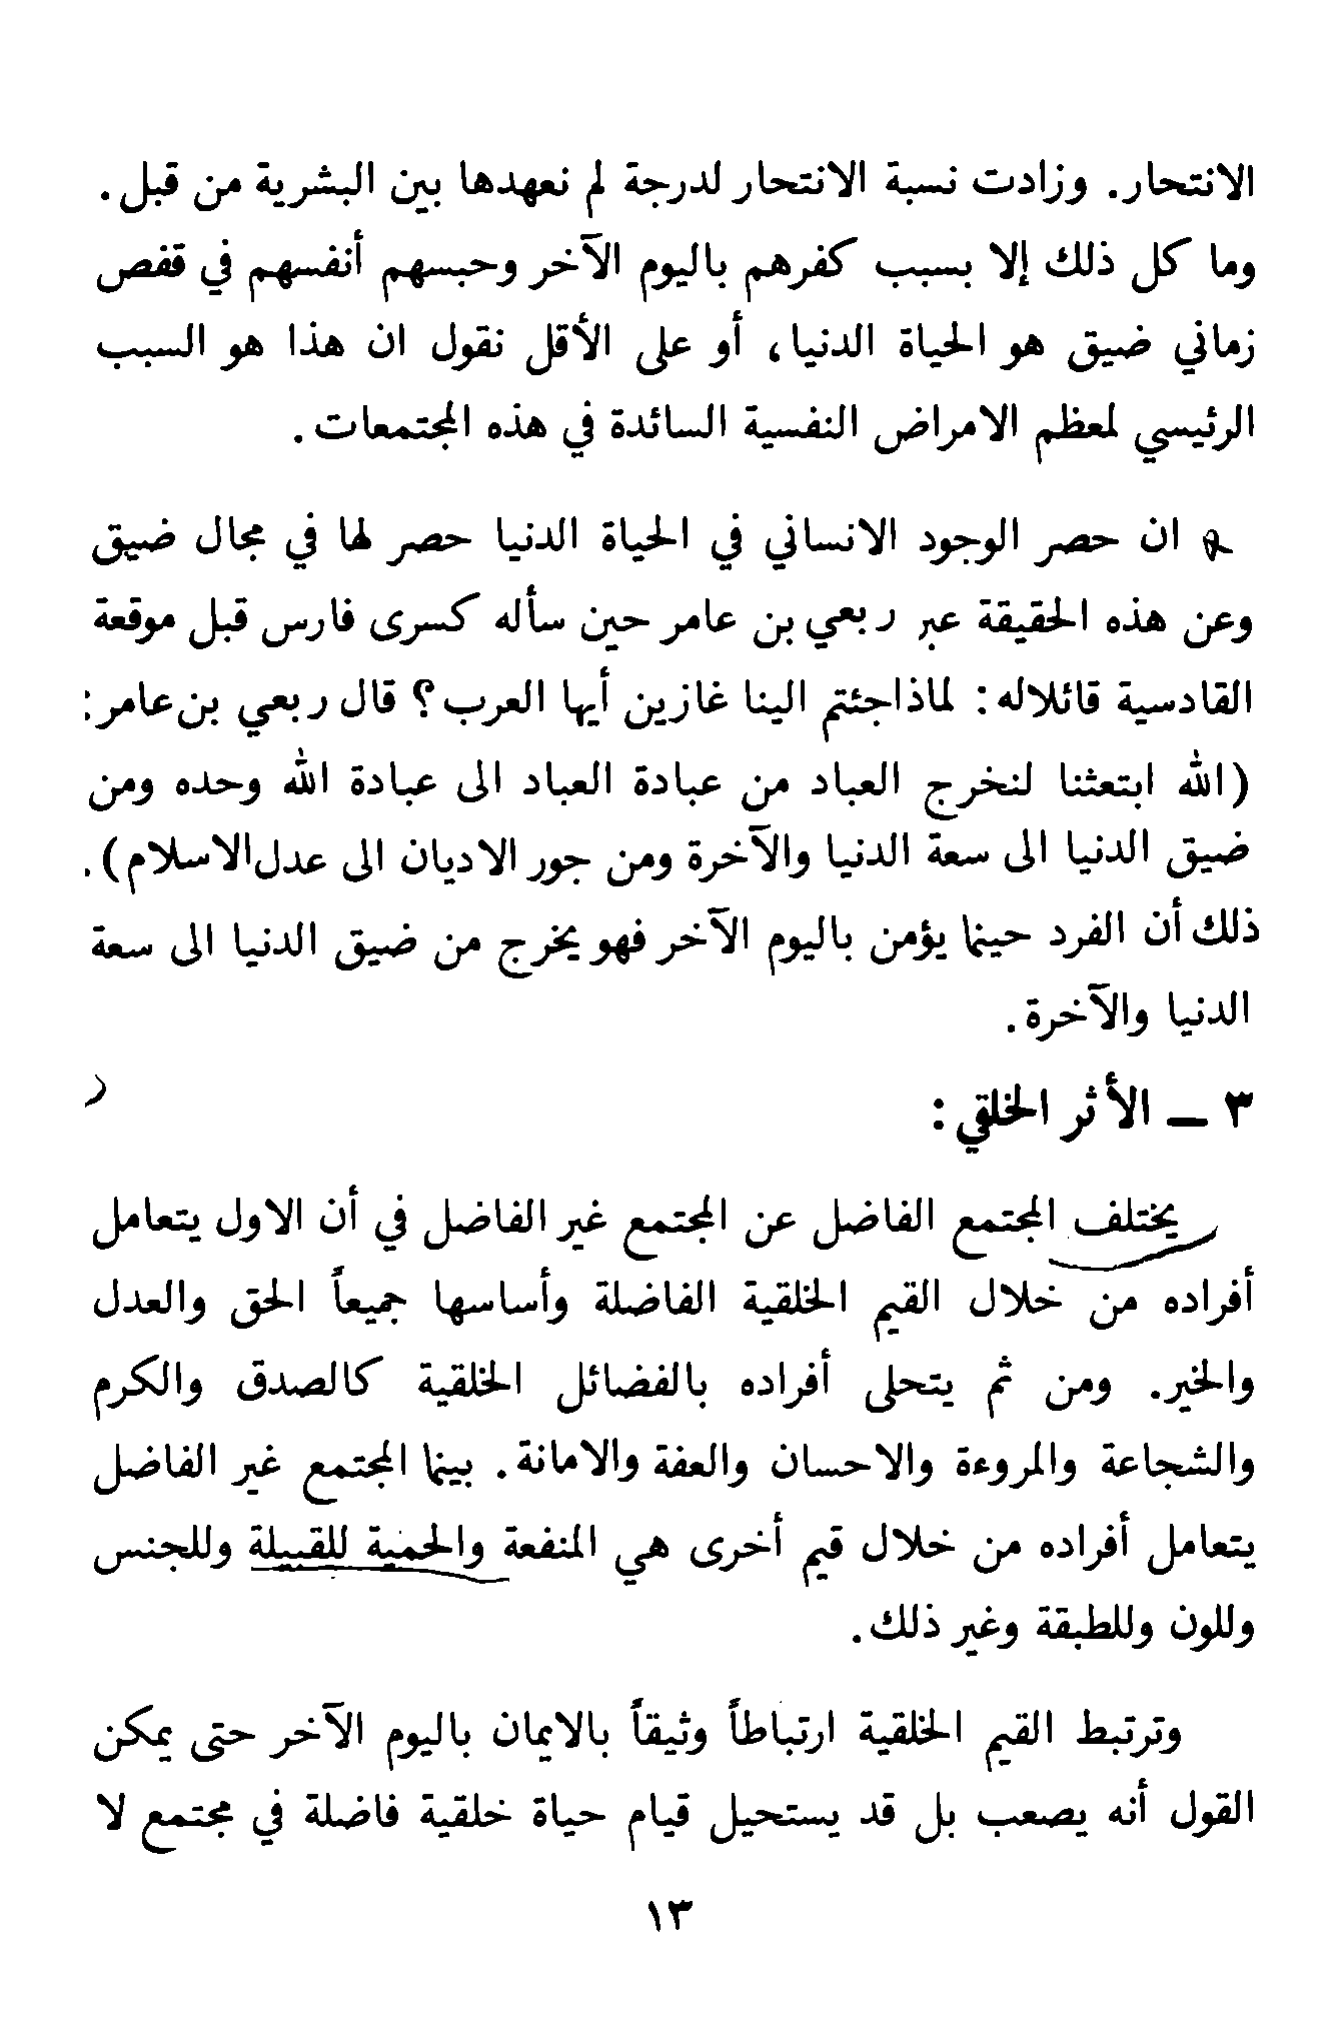 الانتحار. وزادت نسبة الانتحار لدرجة لم نعهدها بين البشرية من قبل.
وما كل ذلك إلا بسبب كفرهم باليوم الآخر وحبسهم أنفسهم في قفص
زماني ضيق هو الحياة الدنيا، أو على الأقل نقول ان هذا هو السبب
الرئيسي لمعظم الامراض النفسية السائدة في هذه المجتمعات.
ان حصر الوجود الانساني في الحياة الدنيا حصر لها في مجال ضيق
وعن هذه الحقيقة عبر ربعي بن عامر حين سأله كسرى فارس قبل موقعة
القادسية قائلاله: لماذاجئتم الينا غازين أيها العرب؟ قال ربعي بن عامر:
(الله ابتعثنا لنخرج العباد من عبادة العباد الى عبادة الله وحده ومن
ضيق الدنيا الى سعة الدنيا والآخرة ومن جور الاديان الى عدل الاسلام).
ذلك أن الفرد حينما يؤمن باليوم الآخر فهو يخرج من ضيق الدنيا الى سعة
الدنيا والآخرة.
٣ ـ الأثر الخلقي:
يختلف المجتمع الفاضل عن المجتمع غير الفاضل في أن الاول يتعامل
أفراده من خلال القيم الخلقية الفاضلة وأساسها جميعاً الحق والعدل
والخير. ومن ثم يتحلى أفراده بالفضائل الخلقية كالصدق والكرم
والشجاعة والمروءة والاحسان والعفة والامانة. بينما المجتمع غير الفاضل
يتعامل أفراده من خلال قيم أخرى هي المنفعة والحمية للقبيلة وللجنس
وللون وللطبقة وغير ذلك.
وترتبط القيم الخلقية ارتباطاً وثيقاً بالايمان باليوم الآخر حتى يمكن
القول أنه يصعب بل قد يستحيل قيام حياة خلقية فاضلة في مجتمع لا
١٣